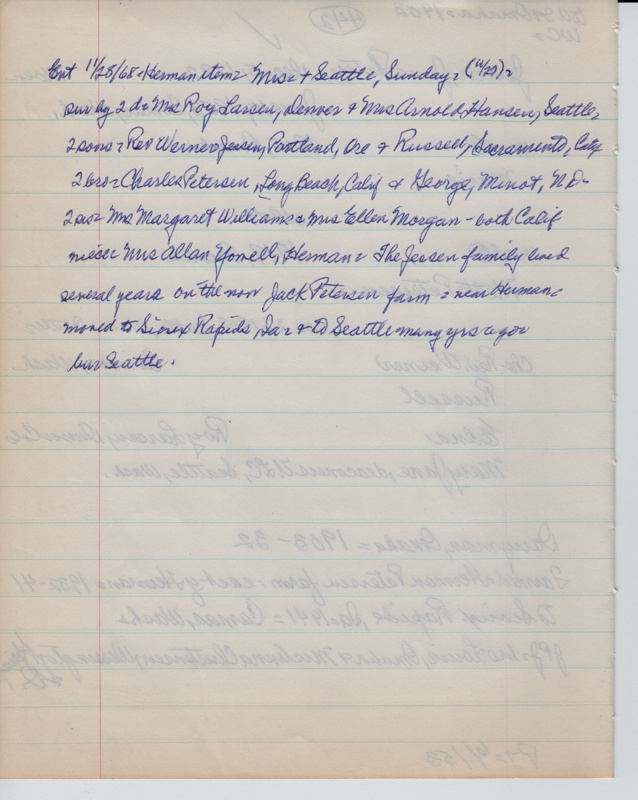 Ent 11/28/68 = Herman item = Mrs = + Seattle, Sunday = (11/24) =
sur by 2 d = Mrs Roy Larsen, Denver + Mrs Arnold Hansen, Seattle =
2 sons = Rev Werner Jessen, Portland, Ore + Russell, Sacramento, Calif
2 bro = Charles Petersen, Long Beach, Calif + George, Minot, N D -
2 sis = Mrs Margaret Williams + Mrs Ellen Morgan - both Calif
niece Mrs Allan Yowell, Herman = The Jessen family lived
several years on the now Jack Petersen farm = near Herman =
moved to Sioux Rapids, Ia = + to Seattle many yrs ago =
bur Seattle.